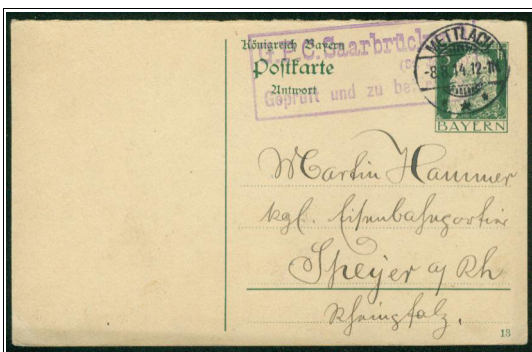 Königreich Bayern
Postkarte
Antwort
P.C. Saarbrück
Geprüft und zu be
METTLACH
-8.8.14.12-
BAYERN
Martin Hammer
kgl. Eisenbahnportier
Speyer a/Rh
Rheinpfalz.
13